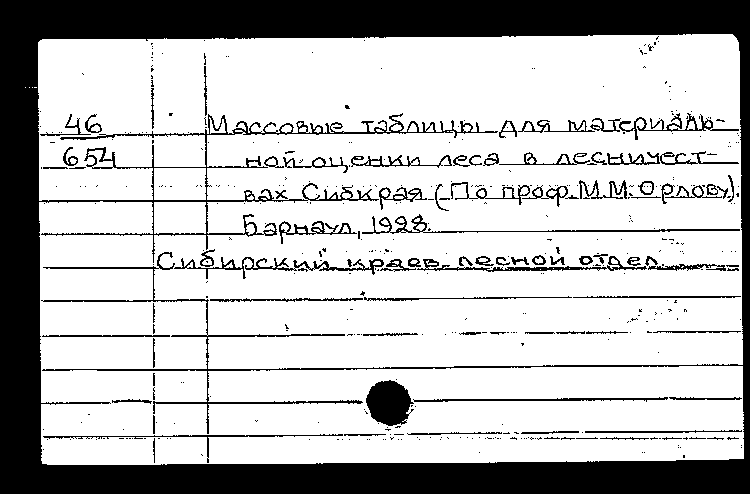 46 Массовые таблицы для материаль-
654 ной оценки леса в лесничест-
вах Сибкрая (По проф. М.М. Орлову).
Барнаул, 1928.
Сибирский краев. лесной отдел